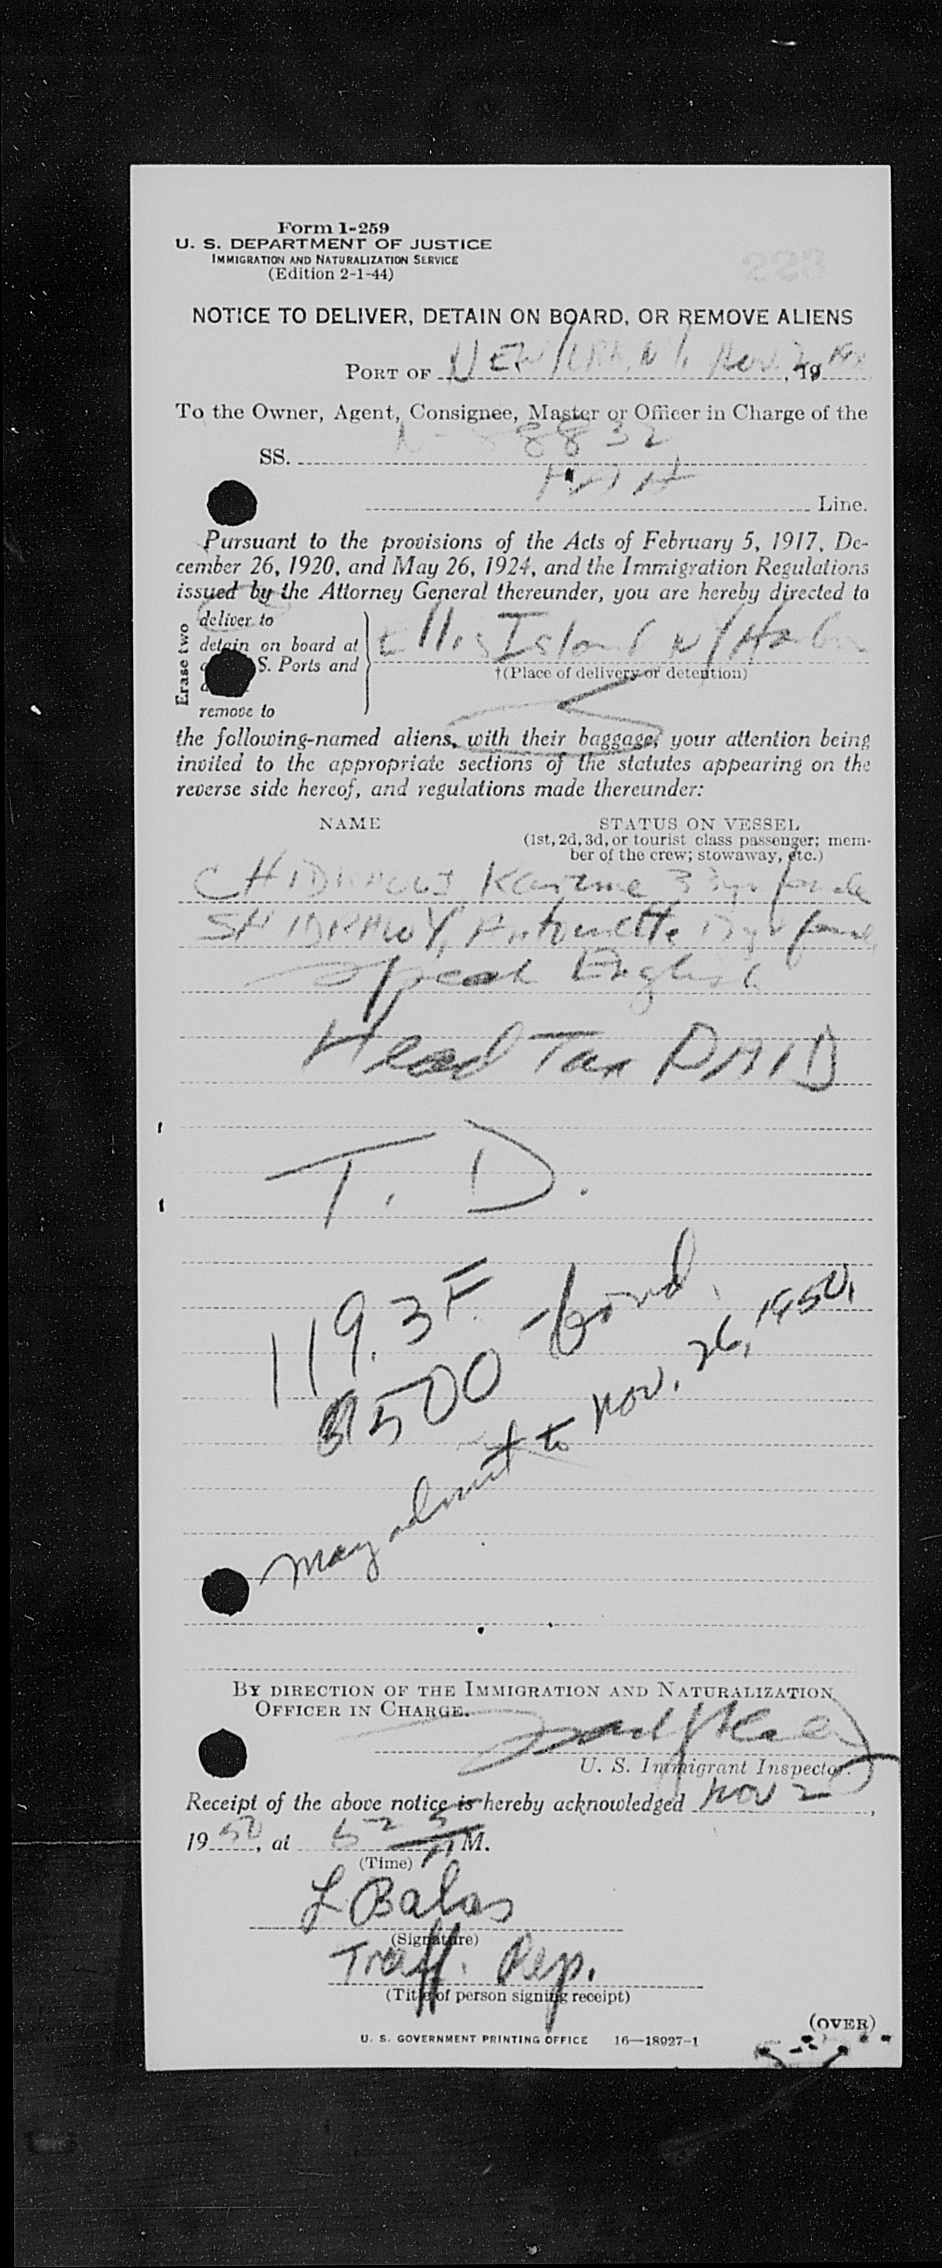 Form I-259
U. S. DEPARTMENT OF JUSTICE
IMMIGRATION AND NATURALIZATION SERVICE
(Edition 2-1-44)
NOTICE TO DELIVER, DETAIN ON BOARD, OR REMOVE ALIENS
PORT OF NEW YORK, N.Y. Nov. 2, 19
To the Owner, Agent, Consignee, Master or Officer in Charge of the
SS. N-88832
Line.
Pursuant to the provisions of the Acts of February 5, 1917, De-
cember 26, 1920, and May 26, 1924, and the Immigration Regulations
issued by the Attorney General thereunder, you are hereby directed to
Erase two
deliver to
detain on board at
S. Ports and
remove to
Ellis Island NY Harbor
†(Place of delivery or detention)
the following-named aliens, with their baggage, your attention being
invited to the appropriate sections of the statutes appearing on the
reverse side hereof, and regulations made thereunder:
NAME
STATUS ON VESSEL
(1st, 2d, 3d, or tourist class passenger; mem-
ber of the crew; stowaway, etc.)
33 yr female
Antoinette yr female
Speak English
Head Tax PAID
T. D.
119.3F.
$500 bond.
May admit to Nov. 26, 1950.
BY DIRECTION OF THE IMMIGRATION AND NATURALIZATION
OFFICER IN CHARGE.
U. S. Immigrant Inspector.
Receipt of the above notice is hereby acknowledged Nov 2
19 50, at M.
(Time)
L Balas
(Signature)
Traff. Rep.
(Title of person signing receipt)
(OVER)
U. S. GOVERNMENT PRINTING OFFICE 16—18927-1